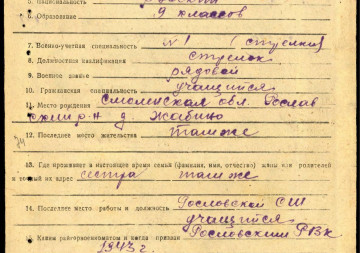 5. Национальность русский
6. Образование 9 классов
7. Военно-учетная специальность №1 (стрелки)
8. Должностная квалификация стрелок
9. Военное звание рядовой
10. Гражданская специальность учащийся
11. Место рождения Смоленская обл. Рослав
р-н д.
12. Последнее место жительства там же
13. Где проживает в настоящее время семья (фамилия, имя, отчество) жены или родителей
и точный их адрес сестра там же
14. Последнее место работы и должность Рославской СШ
учащийся
15. Каким райгорвоенкоматом и когда призван Рославским РВК
1943 г.